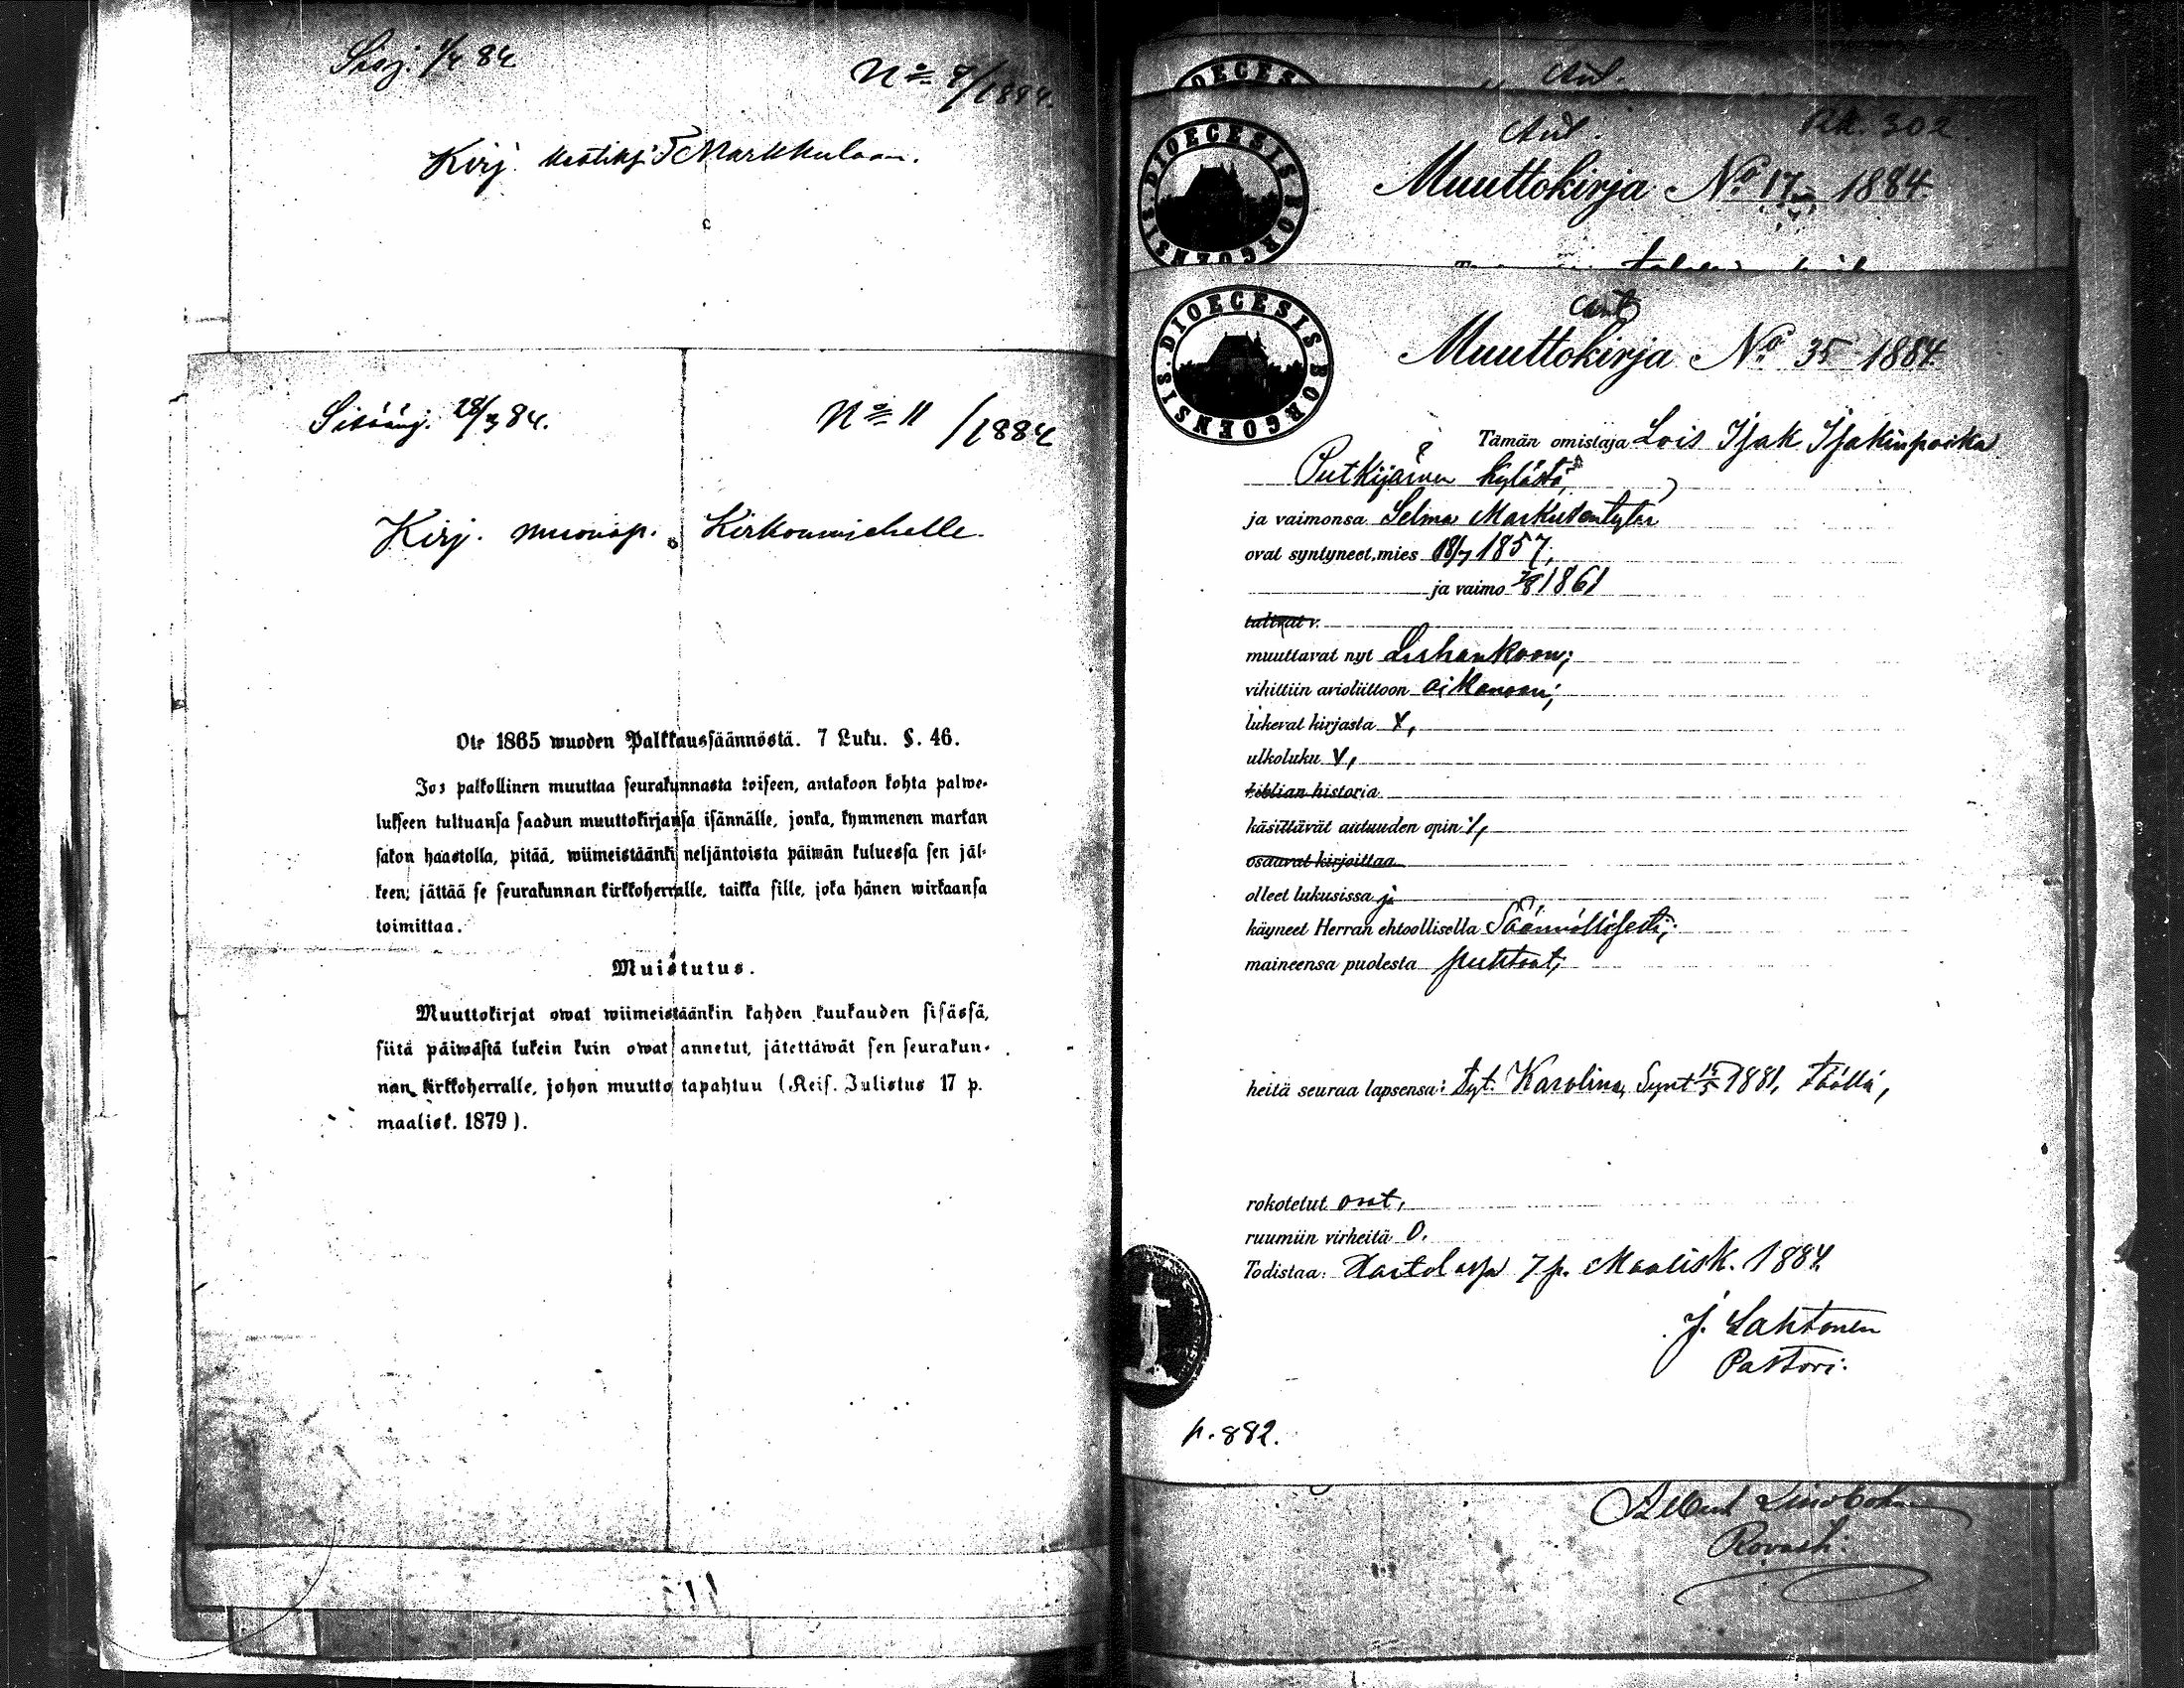 Sisj. 1/4 84
No 7/1884.
Kirj. Markkulaan.
Sisäänj. 28/3 84.
No 11/1884
Kirj. muonap. Kirkonmiehelle.
Ote 1865 wuoden Palkkaussäännöstä. 7 Luku. §. 46.
Jos palkollinen muuttaa seurakunnasta toiseen, antakoon kohta palwe-
lukseen tultuansa saadun muuttokirjansa isännälle, jonka, kymmenen markan
sakon haastolla, pitää, wiimeistäänki neljäntoista päiwän kuluessa sen jäl-
keen; jättää se seurakunnan kirkkoherralle, taikka sille, joka hänen wirkaansa
toimittaa.
Muistutus.
Muuttokirjat owat wiimeistäänkin kahden kuukauden sisässä,
siitä päiwästä lukein kuin owat annetut, jätettäwät sen seurakun-
nan kirkkoherralle, johon muutto tapahtuu (Keis. Julistus 17 p.
maalisk. 1879).
DIOECES
Aut.
DIOECESIS BORGOENSIS
Aut.
302
Muuttokirja No 17 1884.
DIOECESIS BORGOENSIS
Aut
Muuttokirja No 35 1884.
Tämän omistaja Lois Isak Isakinpoika
Putkijärven kylästä,
ja vaimonsa Selma Markudentytär
ovat syntyneet, mies 18/7 1857,
ja vaimo 7/8 1861
talivat v.
muuttavat nyt Luhankoon;
vihittiin avioliittoon aikanaan;
lukevat kirjasta
ulkoluku
biblian historia
käsittävät autuuden opin
osaavat kirjoittaa
olleet lukusissa
käyneet Herran ehtoollisella Säännöllisesti;
maineensa puolesta puhtaat;
heitä seuraa lapsensa: tyt. Karolina, Synt 15/5 1881, täällä,
rokotetut ovat,
ruumiin virheitä 0.
Todistaa: Hartolassa 7 p. Maalisk. 1884
J. Lahtonen
Pastori.
p. 882.
Rovasti.